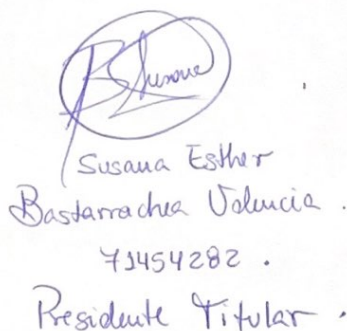 BSusana
Susana Esther
Bastarrachea Valencia.
71454282.
Presidente Titular.